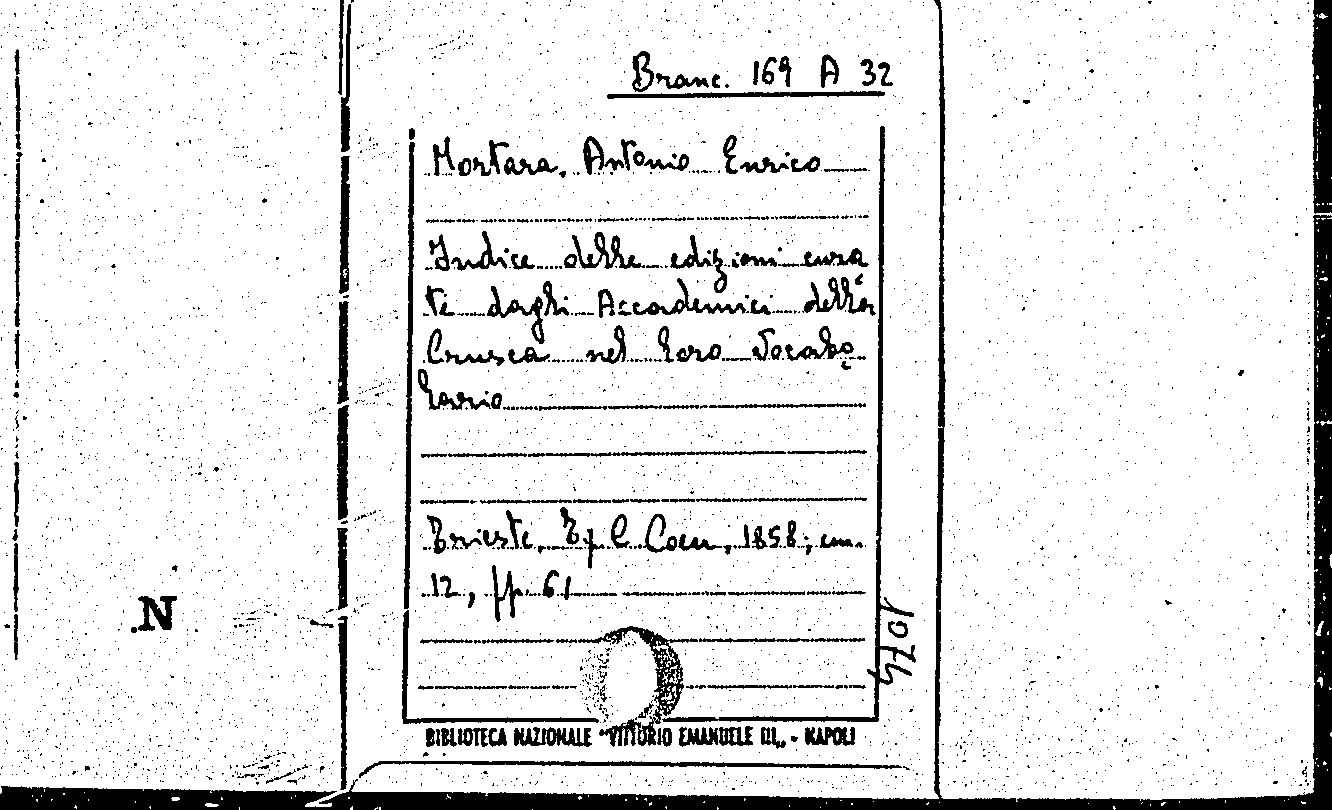 Branc. 169 A 32
Mortara, Antonio Enrico
Indice delle edizioni cura
te dagli Accademici della
Crusca nel loro Vocabo
lario
Trieste, Tip C. Coen, 1858; cm.
12, pp. 61
N
BIBLIOTECA NAZIONALE "VITTORIO EMANUELE III„ - NAPOLI